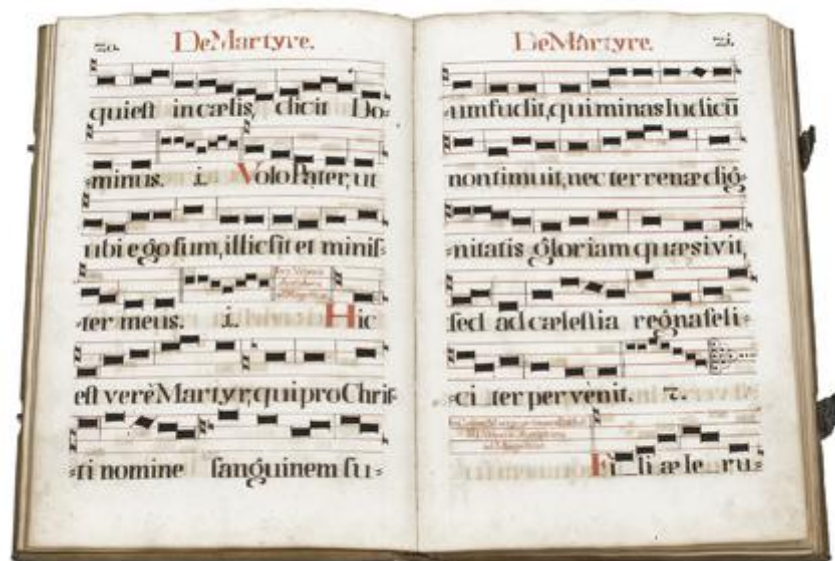 20.
De Martyre.
qui est in cælis, dicit Do-
-minus. i. Volo Pater, ut
ubi ego sum, illic sit et minis-
-ter meus. i. Hic
est verè Martyr, qui pro Chris-
-ti nomine sanguinem su-
De Martyre.
21.
-um fudit, qui minas Iudicū
non timuit, nec terrenæ dig-
-nitatis gloriam quæsivit,
sed ad cælestia regna feli-
-citer pervènit. 7.
Fi_li æ Ie ru-